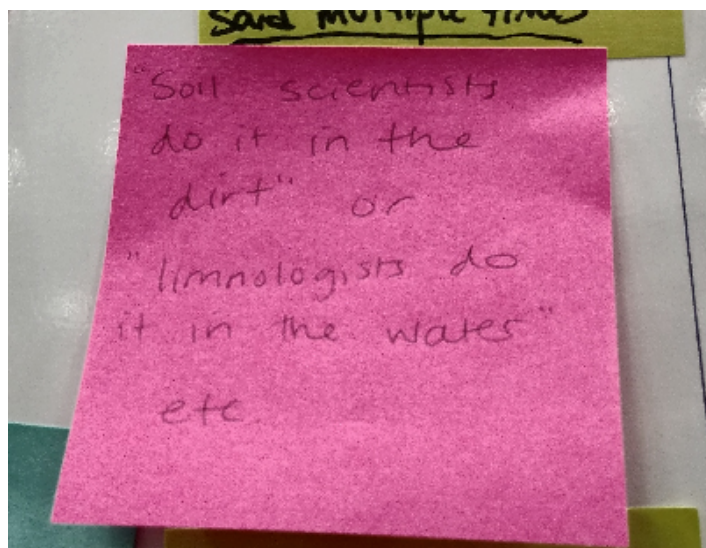 Said multiple times
"Soil scientists
do it in the
dirt" or
"limnologists do
it in the water"
etc